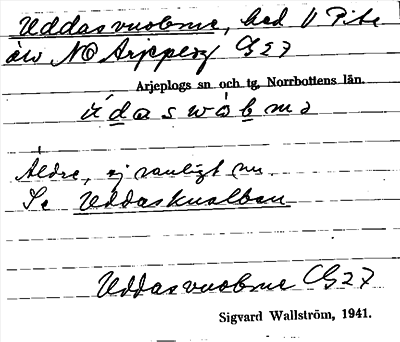 Uddasvuobme, bäd V Pite
älv NO Arjeplog CG27
Arjeplogs sn och tg, Norrbottens län.
u d a s w o b m a
Äldre, ej vanligt nu.
Se Uddasknalben
Uddasvuobme CG27
Sigvard Wallström, 1941.